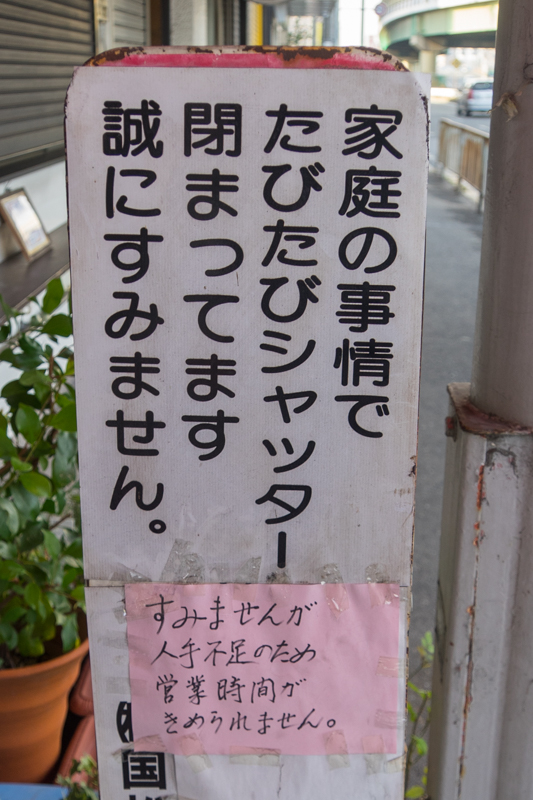 家庭の事情で
たびたびシャッター
閉まってます
誠にすみません。
すみませんが
人手不足のため
営業時間が
きめられません。
国